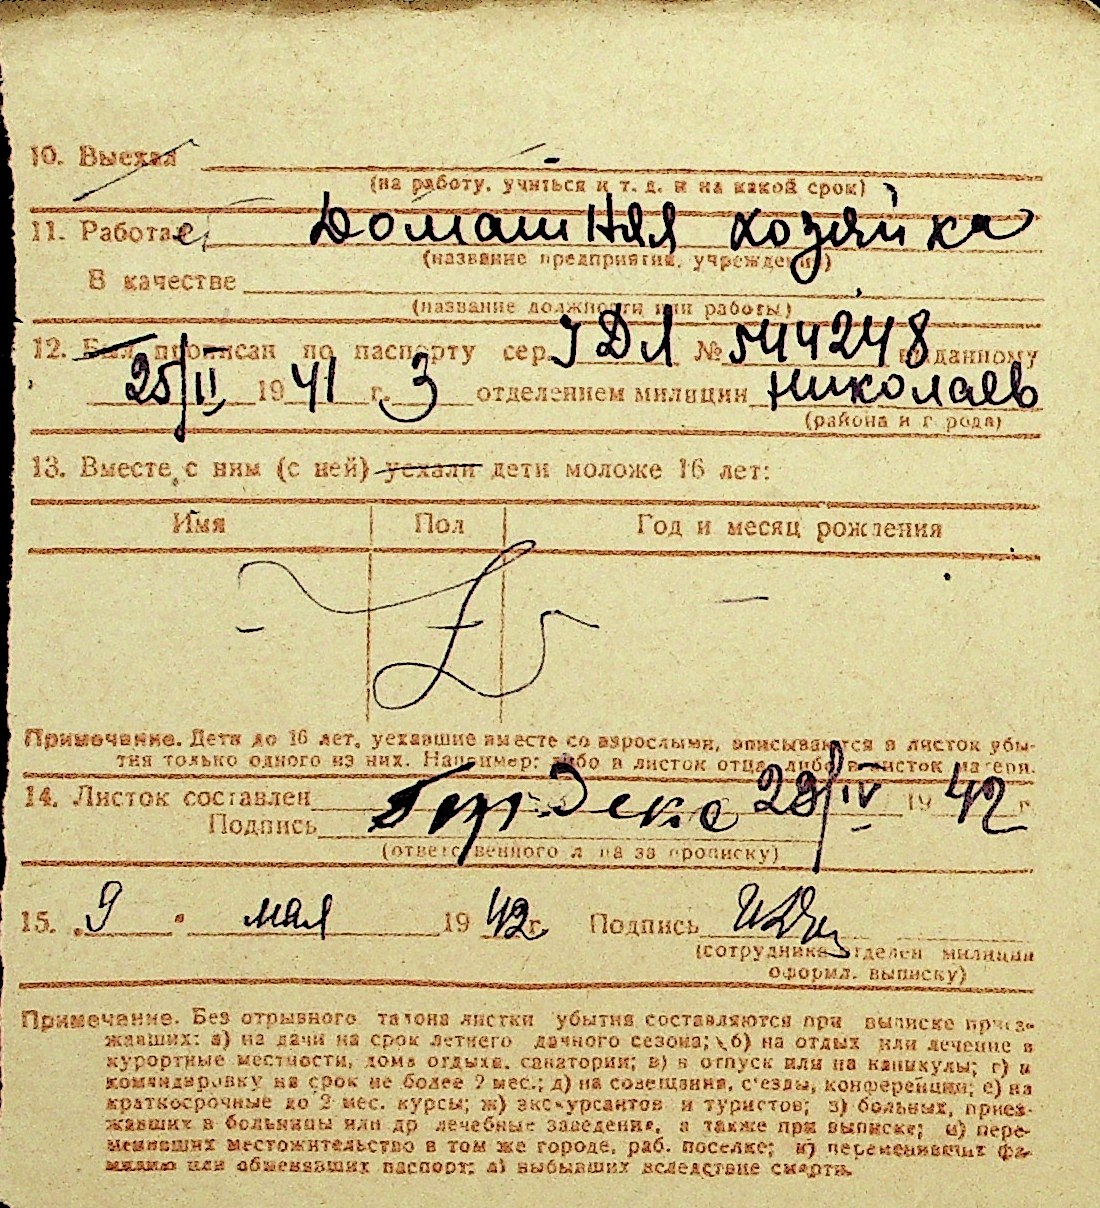 10. Выехал
(на работу, учиться и т. д. и на какой срок)
11. Работает Домашняя хозяйка
(название предприятия, учреждения)
В качестве
(название должности или работы)
12. Был прописан по паспорту сер. УДЛ № 544248 выданному
25/II 1941 г. 3 отделением милиции Николаев
(района и города)
13. Вместе с ним (с ней) уехали дети моложе 16 лет:
Имя Пол Год и месяц рождения
Примечание. Дети до 16 лет, уехавшие вместе со взрослыми, вписываются в листок убы-
тия только одного из них. Например: либо в листок отца, либо в листок матери.
14. Листок составлен 29/IV 1942 г.
Подпись
(ответственного лица за прописку)
15. 9 мая 1942 г. Подпись
(сотрудника отделен милиции
оформл. выписку)
Примечание. Без отрывного талона листки убытия составляются при выписке приез-
жавших: а) на дачи на срок летнего дачного сезона; б) на отдых или лечение в
курортные местности, дома отдыха, санатории; в) в отпуск или на каникулы; г) в
командировку на срок не более 2 мес.; д) на совещания, с'езды, конференции; е) на
краткосрочные до 2 мес. курсы; ж) экскурсантов и туристов; з) больных, приез-
жавших в больницы или др лечебные заведения, а также при выписке; и) пере-
менивших местожительство в том же городе, раб. поселке; к) переменивших фа-
милию или обменявших паспорт; л) выбывших вследствие смерти.